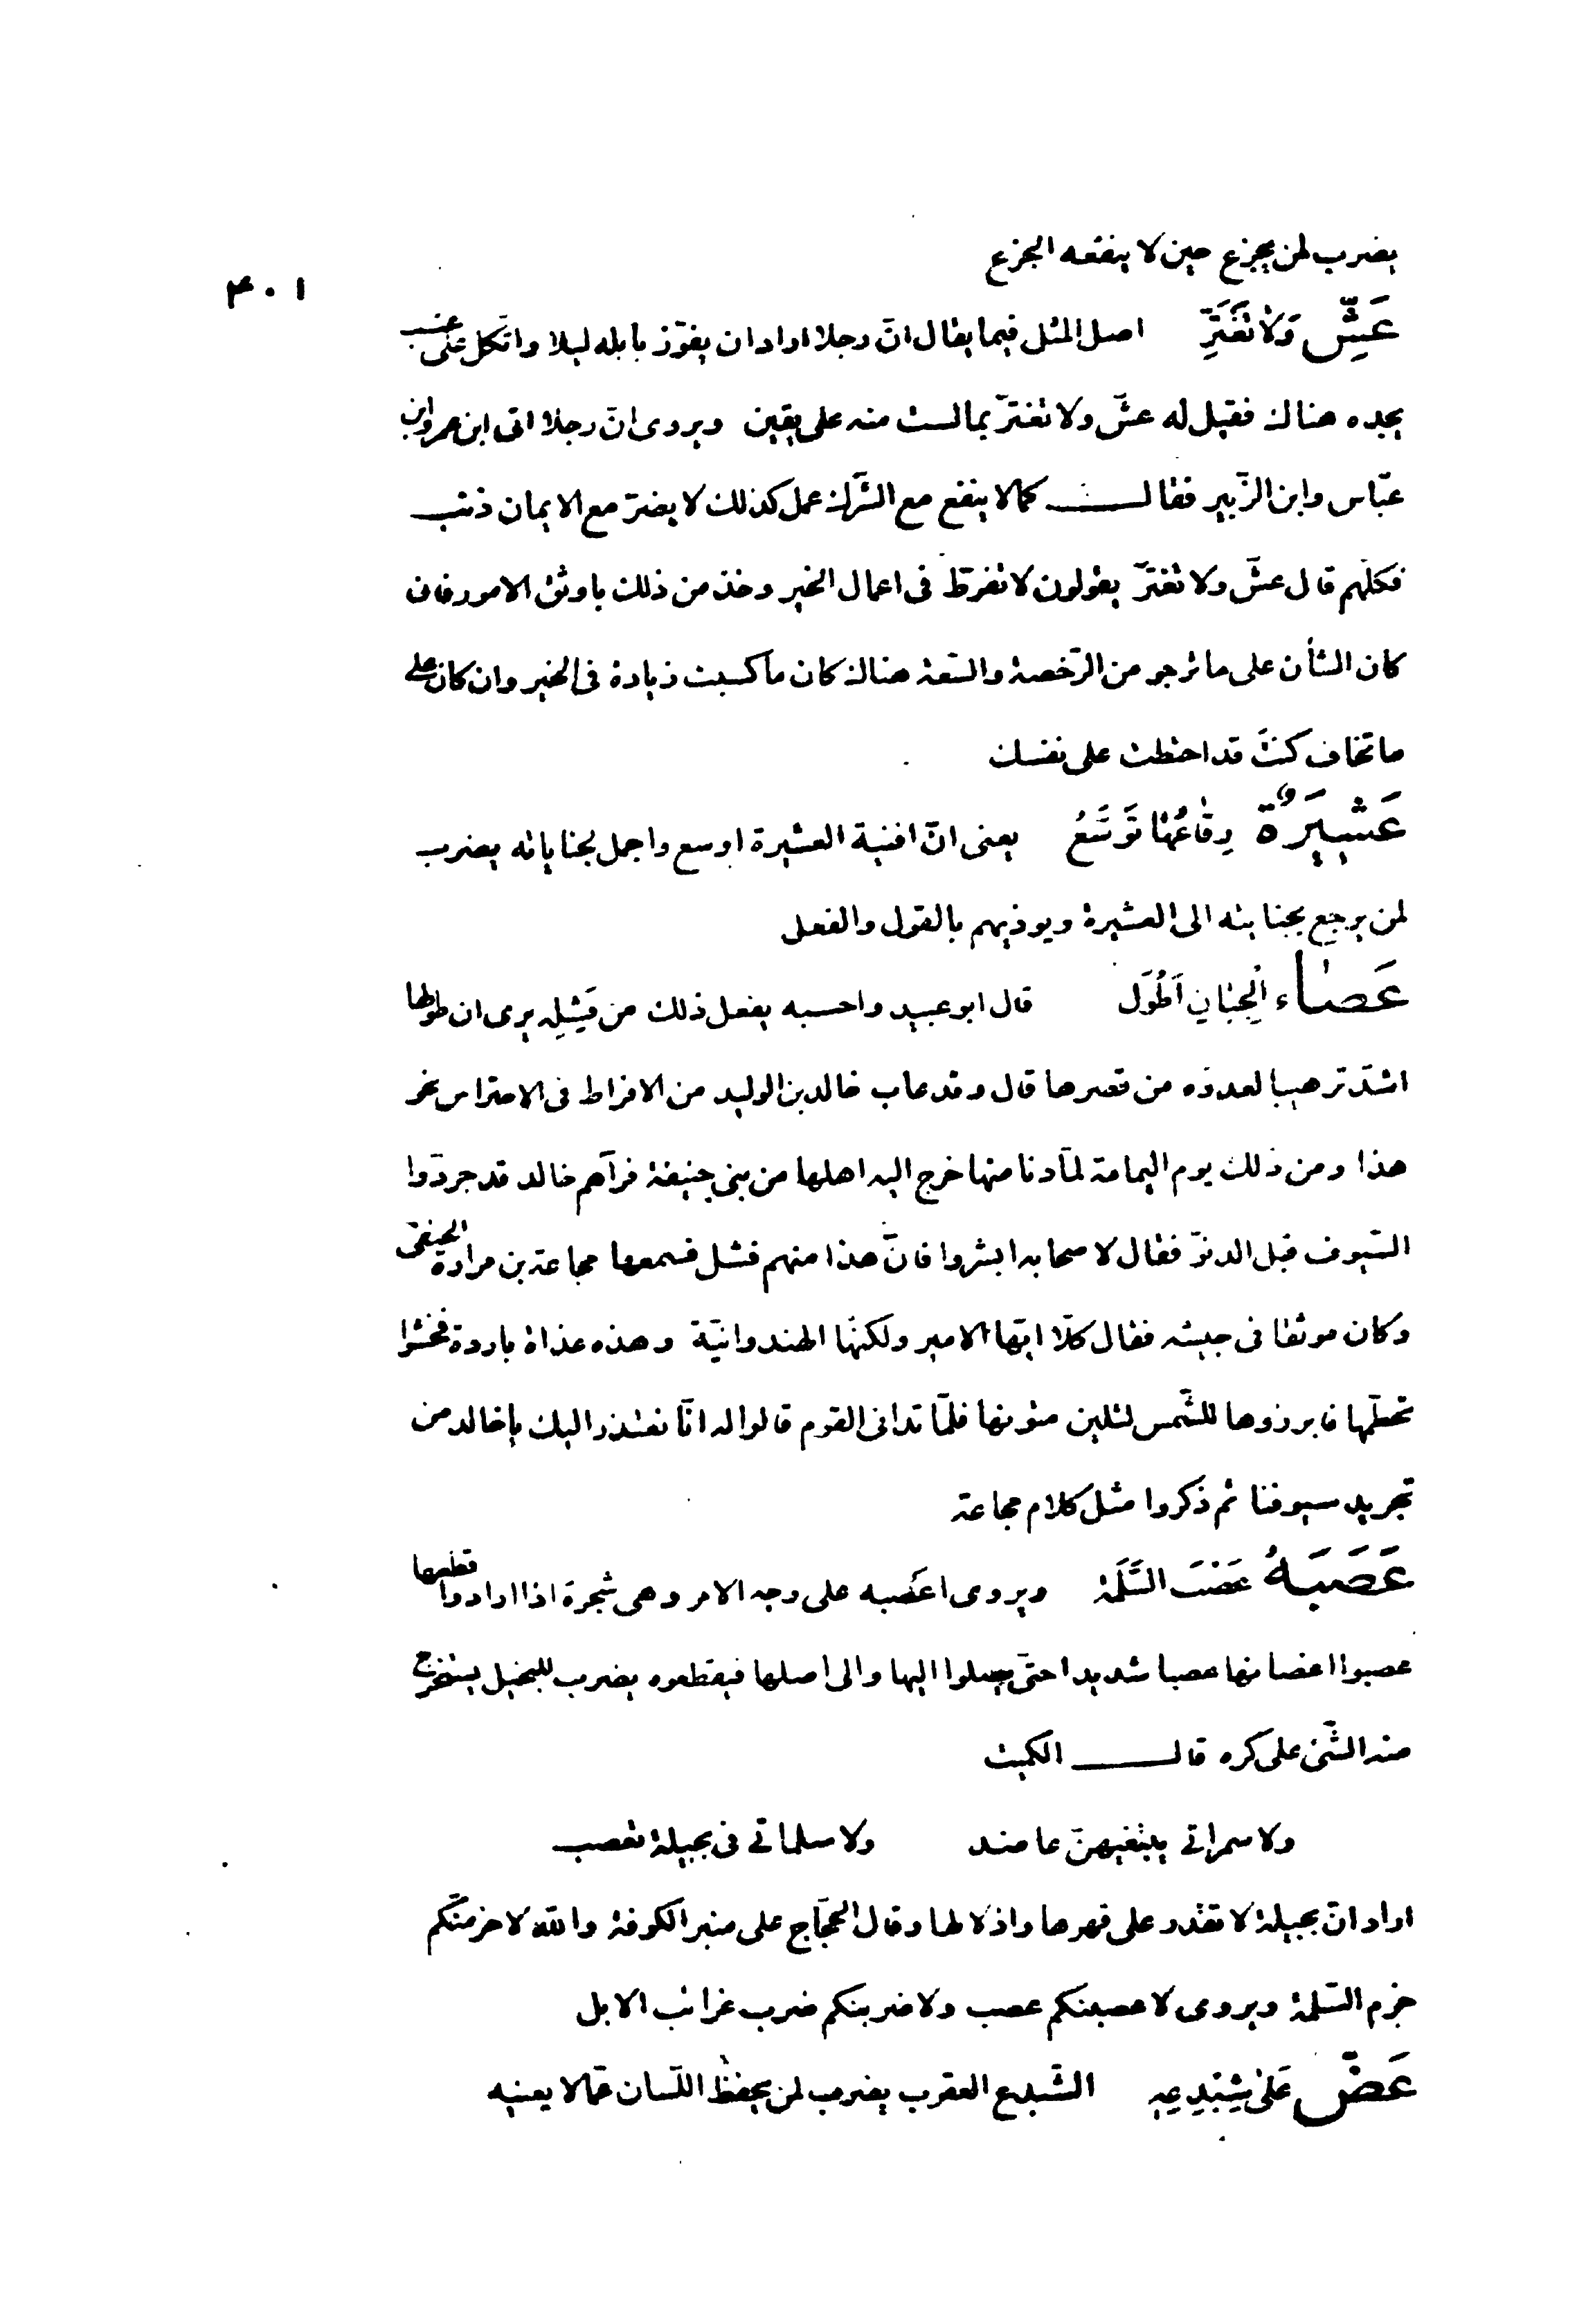 يضرب لمن يجزع حين لا ينفعه الجزع
٤٠١
عَشِّ وَلَا تَغْتَرِّ اصل المثل فيما يقال انّ رجلا اراد ان يفوّز بابله ليلا واتّكل على عشب
يجده هناك فقيل له عشّ ولا تغترّ بما لست منه على يقين ويروى انّ رجلا اتى ابن عمر وابن
عبّاس وابن الزّبير فقال كما لا ينفع مع الشّرك عمل كذلك لا يضرّ مع الايمان ذنب
فكلّهم قال عشّ ولا تغترّ يقولون لا تفرّط فى اعمال الخير وخذ من ذلك باوثق الامور فان
كان الشأن على ما ترجو من الرّخصة والسّعة هناك كان ما كسبت زيادة فى الخير وان كان على
ما تخاف كنتَ قد احتطت على نفسك
عَشِيرَةٌ رِفَاعُهَا تَوَسَّعُ يعنى انّ افنية العشيرة اوسع واجمل لجناياته يضرب
لمن يرجع بجنايته الى العشيرة ويوذيهم بالقول والفعل
عَصَاء الْجَبَانِ أَطْوَل قال ابو عبيد واحسبه يفعل ذلك من فَشَلِه يرى ان طولها
اشدّ ترهيبا لعدوّه من قصرها قال وقد عاب خالد بن الوليد من الافراط فى الاحتراس نحو
هذا ومن ذلك يوم اليمامة لمّا دنا منها خرج اليه اهلها من بنى حنيفة فرآهم خالد قد جرّدوا
السّيوف قبل الدنوّ فقال لاصحابه ابشروا فانّ هذا منهم فشل فسمعها مجاعة بن مرارة الحنفىّ
وكان موثقا فى جيشه فقال كلّا ايّها الامير ولكنّها الهندوانيّة وهذه غداة باردة فخشوا
تحطّمها فابرزوها للشّمس لتلين متونها فلمّا تدانى القوم قالوا له انّا نعتذر اليك يا خالد من
تجريد سيوفنا ثم ذكروا مثل كلام مجاعة
عَصَبَهُ عَصْبَ السَّلَمَة ويروى اعصبه على وجه الامر وهى شجرة اذا ارادوا قطعها
عصبوا اغصانها عصبا شديدا حتّى يصلوا اليها والى اصلها فيقطعوه يضرب للبخيل يستخرج
منه الشّئ على كره قال الكميت
ولا سمراتى يبتغيهنّ عاضد ولا سلماتى فى بجيلة تعصب
اراد انّ بجيلة لا تقدر على قهرها واذلالها وقال الحجّاج على منبر الكوفة واللّه لاحزمنّكم
حزم السّلمة ويروى لاعصبنكم عصب ولاضربنكم ضرب غرائب الابل
عَضَّ عَلَى شِبْدِعِهِ الشّبدع العقرب يضرب لمن يحفظ اللّسان عمّا لا يعنيه